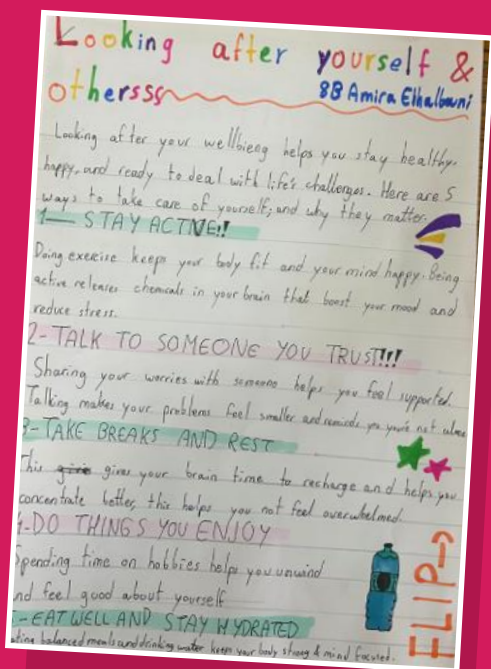 Looking after yourself &
othersss
8B Amira Elhalbawi
Looking after your wellbieng helps you stay healthy,
happy, and ready to deal with life's challenges. Here are 5
ways to take care of yourself, and why they matter.
1- STAY ACTIVE!!
Doing exercise keeps your body fit and your mind happy. Being
active releases chemicals in your brain that boost your mood and
reduce stress.
2-TALK TO SOMEONE YOU TRUST!!!
Sharing your worries with someone helps you feel supported.
Talking makes your problems feel smaller and reminds you you're not alone
3-TAKE BREAKS AND REST
This gives your brain time to recharge and helps you
concentrate better, this helps you not feel overwhelmed.
4-DO THINGS YOU ENJOY
Spending time on hobbies helps you unwind
and feel good about yourself
5-EAT WELL AND STAY HYDRATED
Eating balanced meals and drinking water keeps your body strong & mind focused.
FLIP→